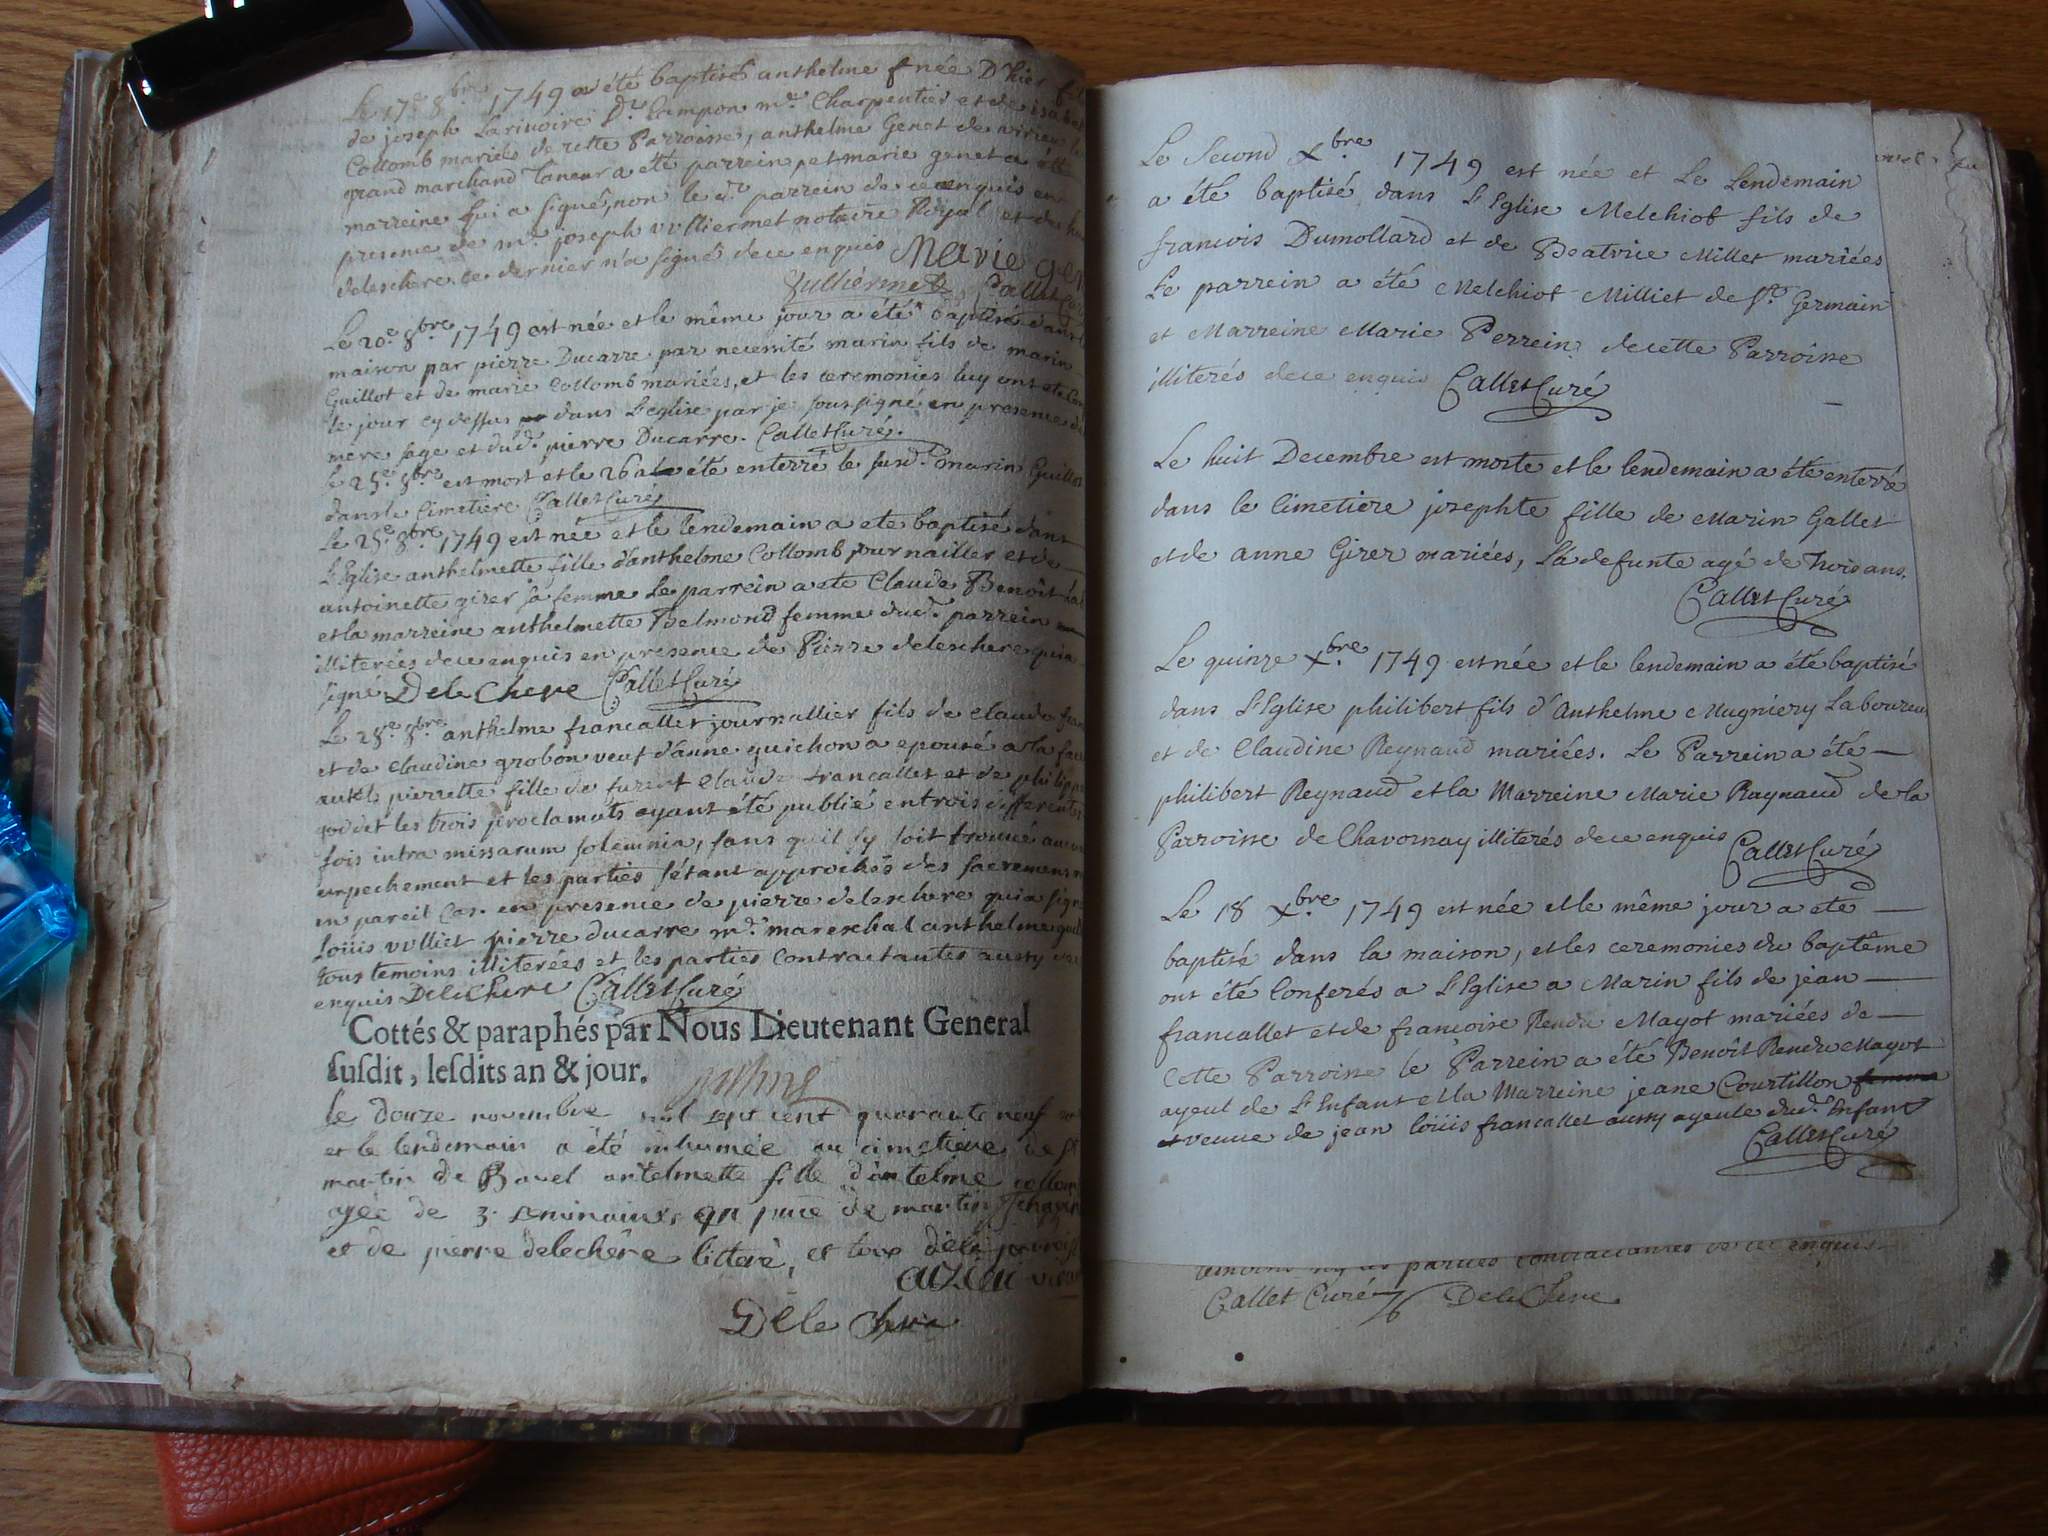 Le 17e 8bre 1749 a été baptisé anthelme née D'hier
de joseph Larivoire Dt Lampon me Charpentier et de
Collomb mariés de cette Parroisse, anthelme Genet de
grand marchand Taneur a été parrein et marie genet a été
marreine qui a signé, non le dt parrein de ce enquis en
presence de me joseph vulliermet notaire Royal et de
delechere ce dernier n'a signé de ce enquis Marie gen
Vulliermet Callet Curé
Le 20e 8bre 1749 est née et le même jour a été baptisé dans la
maison par pierre Ducarre par necessité marin fils de marin
Guillot et de marie Collomb mariées, et les ceremonies luy ont été
le jour cy dessus dans l'eglise par je soussigné en presence de
mere sage et dud. pierre Ducarre. Callet Curé.
le 25e 8bre est mort et le 26 a été enterré le susd. marin Guillot
dans le Cimetiere Callet Curé
Le 25e 8bre 1749 est née et le lendemain a ete baptisé dans
l'Eglise anthelmette fille d'anthelme Collomb journailler et de
antoinette girer sa femme Le parrein a ete Claude Benoît
et la marreine anthelmette Belmond femme dud. parrein
illiterées de ce enquis en presence de Pierre delechere qui a
signé Delechere Callet Curé
Le 28e 8bre anthelme francallet journallier fils de claude
et de claudine grobon veuf d'anne guichon a epousé a la face
autels pierrette fille de furent Claude francallet et de philippe
goddet les trois proclamats ayant été publié en trois differentes
fois intra missarum solemnia, sans qu'il sy soit trouvé aucun
empechement et les parties s'étant approchés des sacremens
en pareil Cas. en presence de pierre delechere qui a signé
Loüis vulliet pierre ducarre me. mareschal anthelme
tous temoins illiterées et les parties Contractantes aussy
enquis Delechere Callet Curé
Cottés & paraphés par Nous Lieutenant General
susdit, lesdits an & jour.
le douze novembre mil sept cent quarante neuf
et le lendemain a été inhumée au cimetiere de St
martin de Bavel antelmette fille d'antelme collom
agée de 3. semaines, en pnce de martin
et de pierre delechêre litteré, et tous
Delechere
Le Second Xbre 1749 est née et Le Lendemain
a été baptisé dans l'Eglise Melchiot fils de
francois Dumollard et de Beatrice Millet mariées
Le parrein a été Melchiot Milliet de St. Germain
et Marreine Marie Perrein de cette Parroisse
illiterés de ce enquis Callet Curé
Le huit Decembre est morte et le lendemain a été enterré
dans le Cimetiere josephte fille de Marin Gallet
et de anne Girer mariées, La defunte agé de trois ans.
Callet Curé
Le quinze Xbre 1749 est née et le lendemain a été baptisé
dans l'Eglise philibert fils d'Anthelme Mugniery Laboureur
et de Claudine Reynaud mariées. Le Parrein a été
philibert Reynaud et la Marreine Marie Raynaud de la
Parroisse de Chavornay illiterés de ce enquis Callet Curé
Le 18 Xbre 1749 est née et le même jour a ete
baptisé dans la maison, et les ceremonies du baptême
ont été Conferés a l'Eglise a Marin fils de jean
francallet et de francoise Rendu Magot mariées de
Cette Parroisse le Parrein a été Benoît Rendu Magot
ayeul de l'Enfant et la Marreine jeane Courtillon femme
et veuve de jean loüis francallet aussy ayeule dud. Enfant
Callet Curé
temoins ny les parties contractantes de ce enquis
Callet Curé Delechere